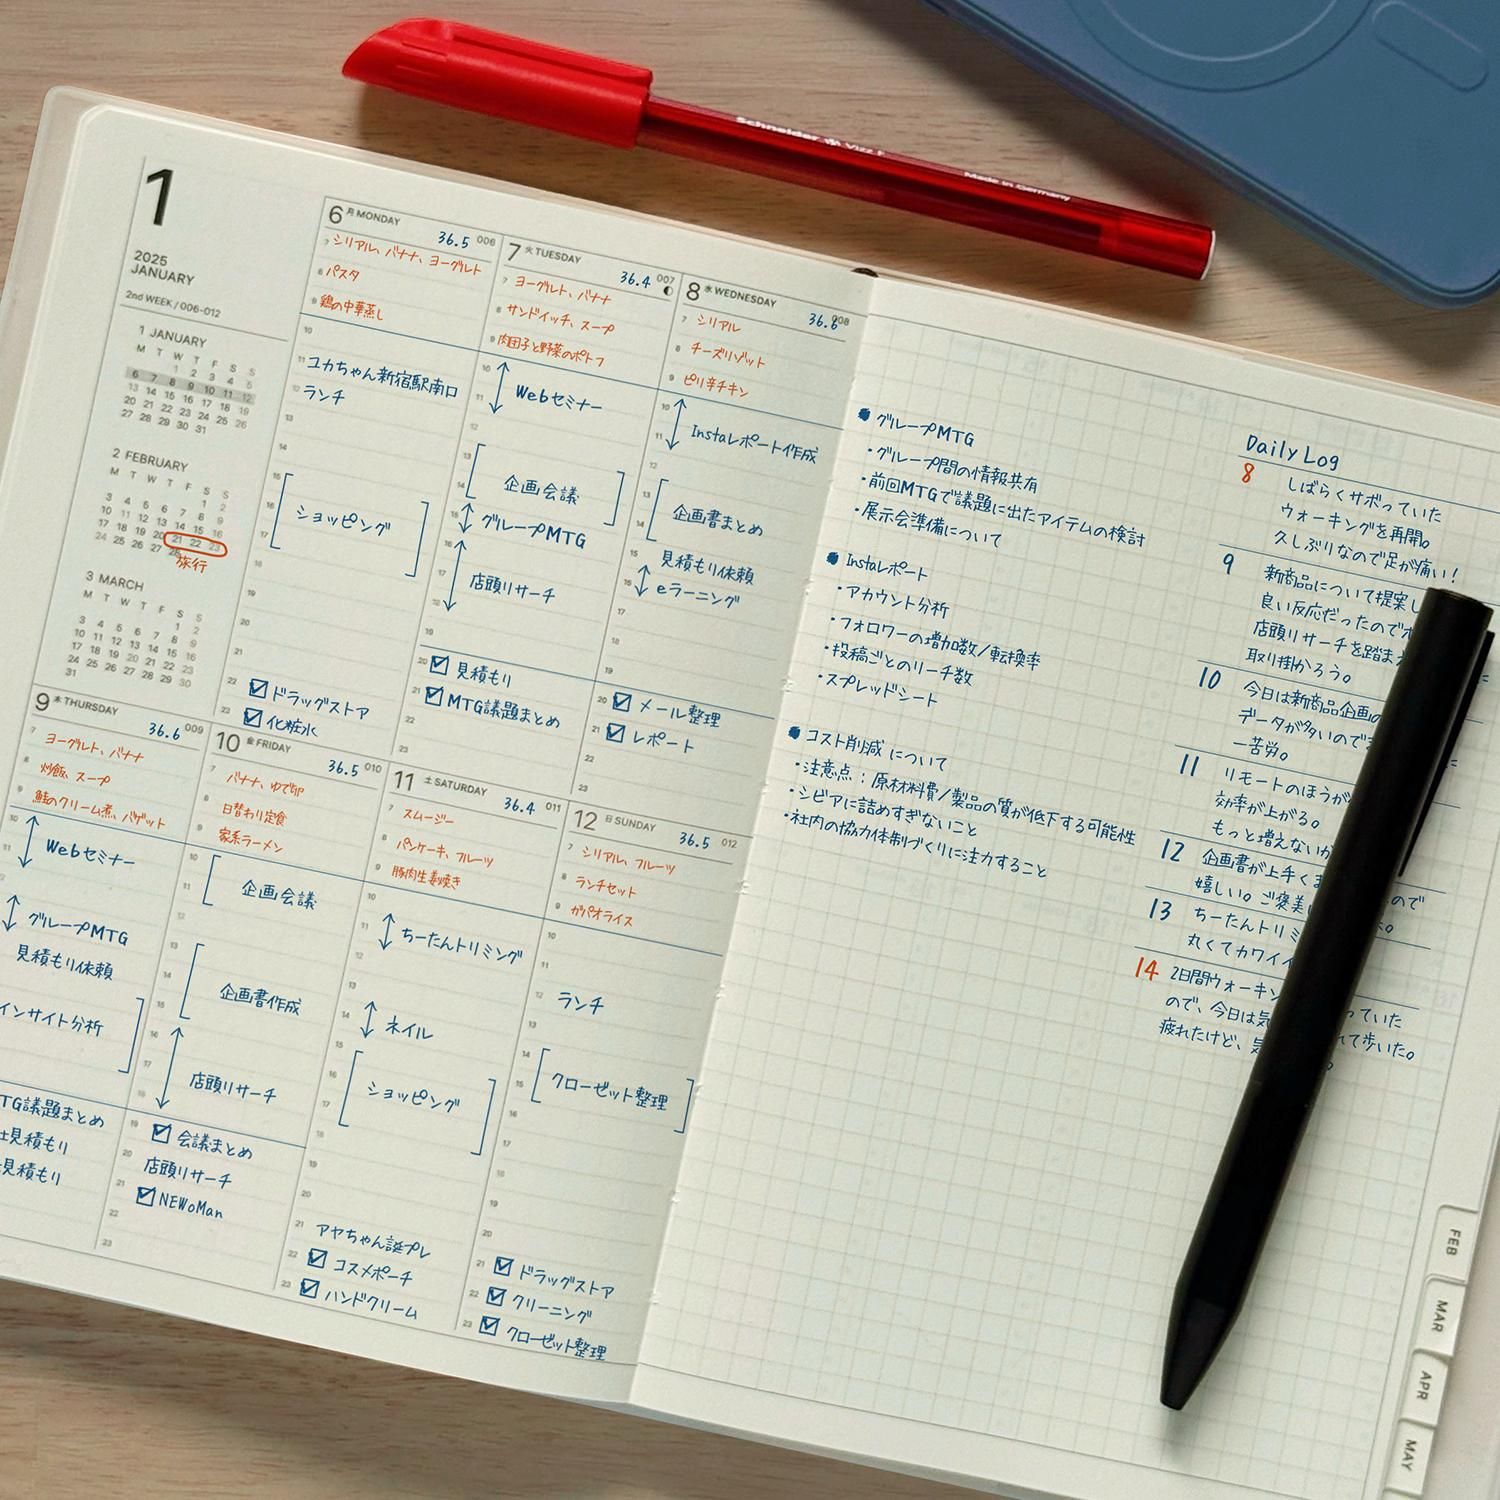 Schneider Vizz F
Made in Germany
1
2025
JANUARY
2nd WEEK / 006-012
1 JANUARY
M T W T F S S
1 2 3 4 5
6 7 8 9 10 11 12
13 14 15 16 17 18 19
20 21 22 23 24 25 26
27 28 29 30 31
2 FEBRUARY
M T W T F S S
1 2
3 4 5 6 7 8 9
10 11 12 13 14 15 16
17 18 19 20 21 22 23
24 25 26 27 28
旅行
3 MARCH
M T W T F S S
1 2
3 4 5 6 7 8 9
10 11 12 13 14 15 16
17 18 19 20 21 22 23
24 25 26 27 28 29 30
31
6 月 MONDAY
36.5 006
7 シリアル、バナナ、ヨーグルト
8 パスタ
9 鶏の中華蒸し
10
11 ユカちゃん新宿駅南口
12 ランチ
13
14
15
16 ショッピング
17
18
19
20
21
22 ☑ ドラッグストア
23 ☑ 化粧水
7 火 TUESDAY
36.4 007
7 ヨーグルト、バナナ
8 サンドイッチ、スープ
9 肉団子と野菜のポトフ
10
11 Webセミナー
12
13
14 企画会議
15 グループMTG
16
17 店頭リサーチ
18
19
20 ☑ 見積もり
21 ☑ MTG議題まとめ
22
23
8 水 WEDNESDAY
36.6 008
7 シリアル
8 チーズリゾット
9 ピリ辛チキン
10
11 Instaレポート作成
12
13
14 企画書まとめ
15 見積もり依頼
16 eラーニング
17
18
19
20 ☑ メール整理
21 ☑ レポート
22
23
9 木 THURSDAY
36.6 009
7 ヨーグルト、バナナ
8 炒飯、スープ
9 鮭のクリーム煮、バゲット
10
11 Webセミナー
グループMTG
見積もり依頼
インサイト分析
TG議題まとめ
見積もり
見積もり
10 金 FRIDAY
36.5 010
7 バナナ、ゆで卵
8 日替わり定食
9 家系ラーメン
10
11 企画会議
12
13
14 企画書作成
15
16
17 店頭リサーチ
18
19 ☑ 会議まとめ
20 店頭リサーチ
21 ☑ NEWoMan
22
23
11 土 SATURDAY
36.4 011
7 スムージー
8 パンケーキ、フルーツ
9 豚肉生姜焼き
10
11 ちーたんトリミング
12
13
14 ネイル
15
16 ショッピング
17
18
19
20
21 アヤちゃん誕プレ
22 ☑ コスメポーチ
23 ☑ ハンドクリーム
12 日 SUNDAY
36.5 012
7 シリアル、フルーツ
8 ランチセット
9 ガパオライス
10
11
12 ランチ
13
14
15 クローゼット整理
16
17
18
19
20
21 ☑ ドラッグストア
22 ☑ クリーニング
23 ☑ クローゼット整理
● グループMTG
・グループ間の情報共有
・前回MTGで議題に出たアイテムの検討
・展示会準備について
● Instaレポート
・アカウント分析
・フォロワーの増加数/転換率
・投稿ごとのリーチ数
・スプレッドシート
● コスト削減について
・注意点：原材料費/製品の質が低下する可能性
・シビアに詰めすぎないこと
・社内の協力体制づくりに注力すること
Daily Log
8 しばらくサボっていた
ウォーキングを再開。
久しぶりなので足が痛い！
9 新商品について提案し
良い反応だったので
店頭リサーチを踏ま
取り掛かろう。
10 今日は新商品企画の
データが多いので
一苦労。
11 リモートのほうが
効率が上がる。
もっと増えないか
12 企画書が上手く ので
嬉しい。ご褒美
13 ちーたんトリミ
丸くてカワイイ
14 2日間ウォーキン っていた
ので、今日は気 れて歩いた。
疲れたけど、気
FEB
MAR
APR
MAY